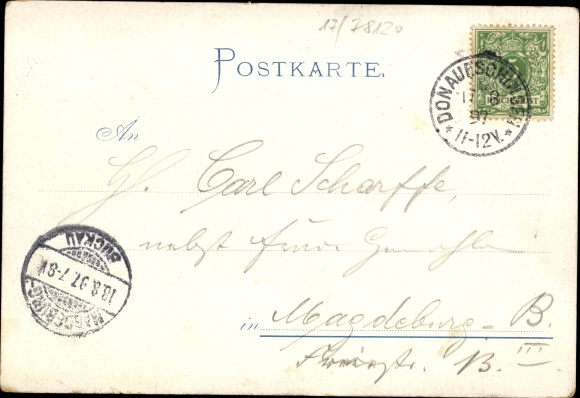 17/78120
POSTKARTE.
DONAUESCHINGEN
17 8
97
11-12V.
REICHSPOST
An
Carl Scharffe,
nebst Gemahlin
BUCKAU
18.8.97. 7-8V.
MAGDEBURG-
in Magdeburg-B.
B. III